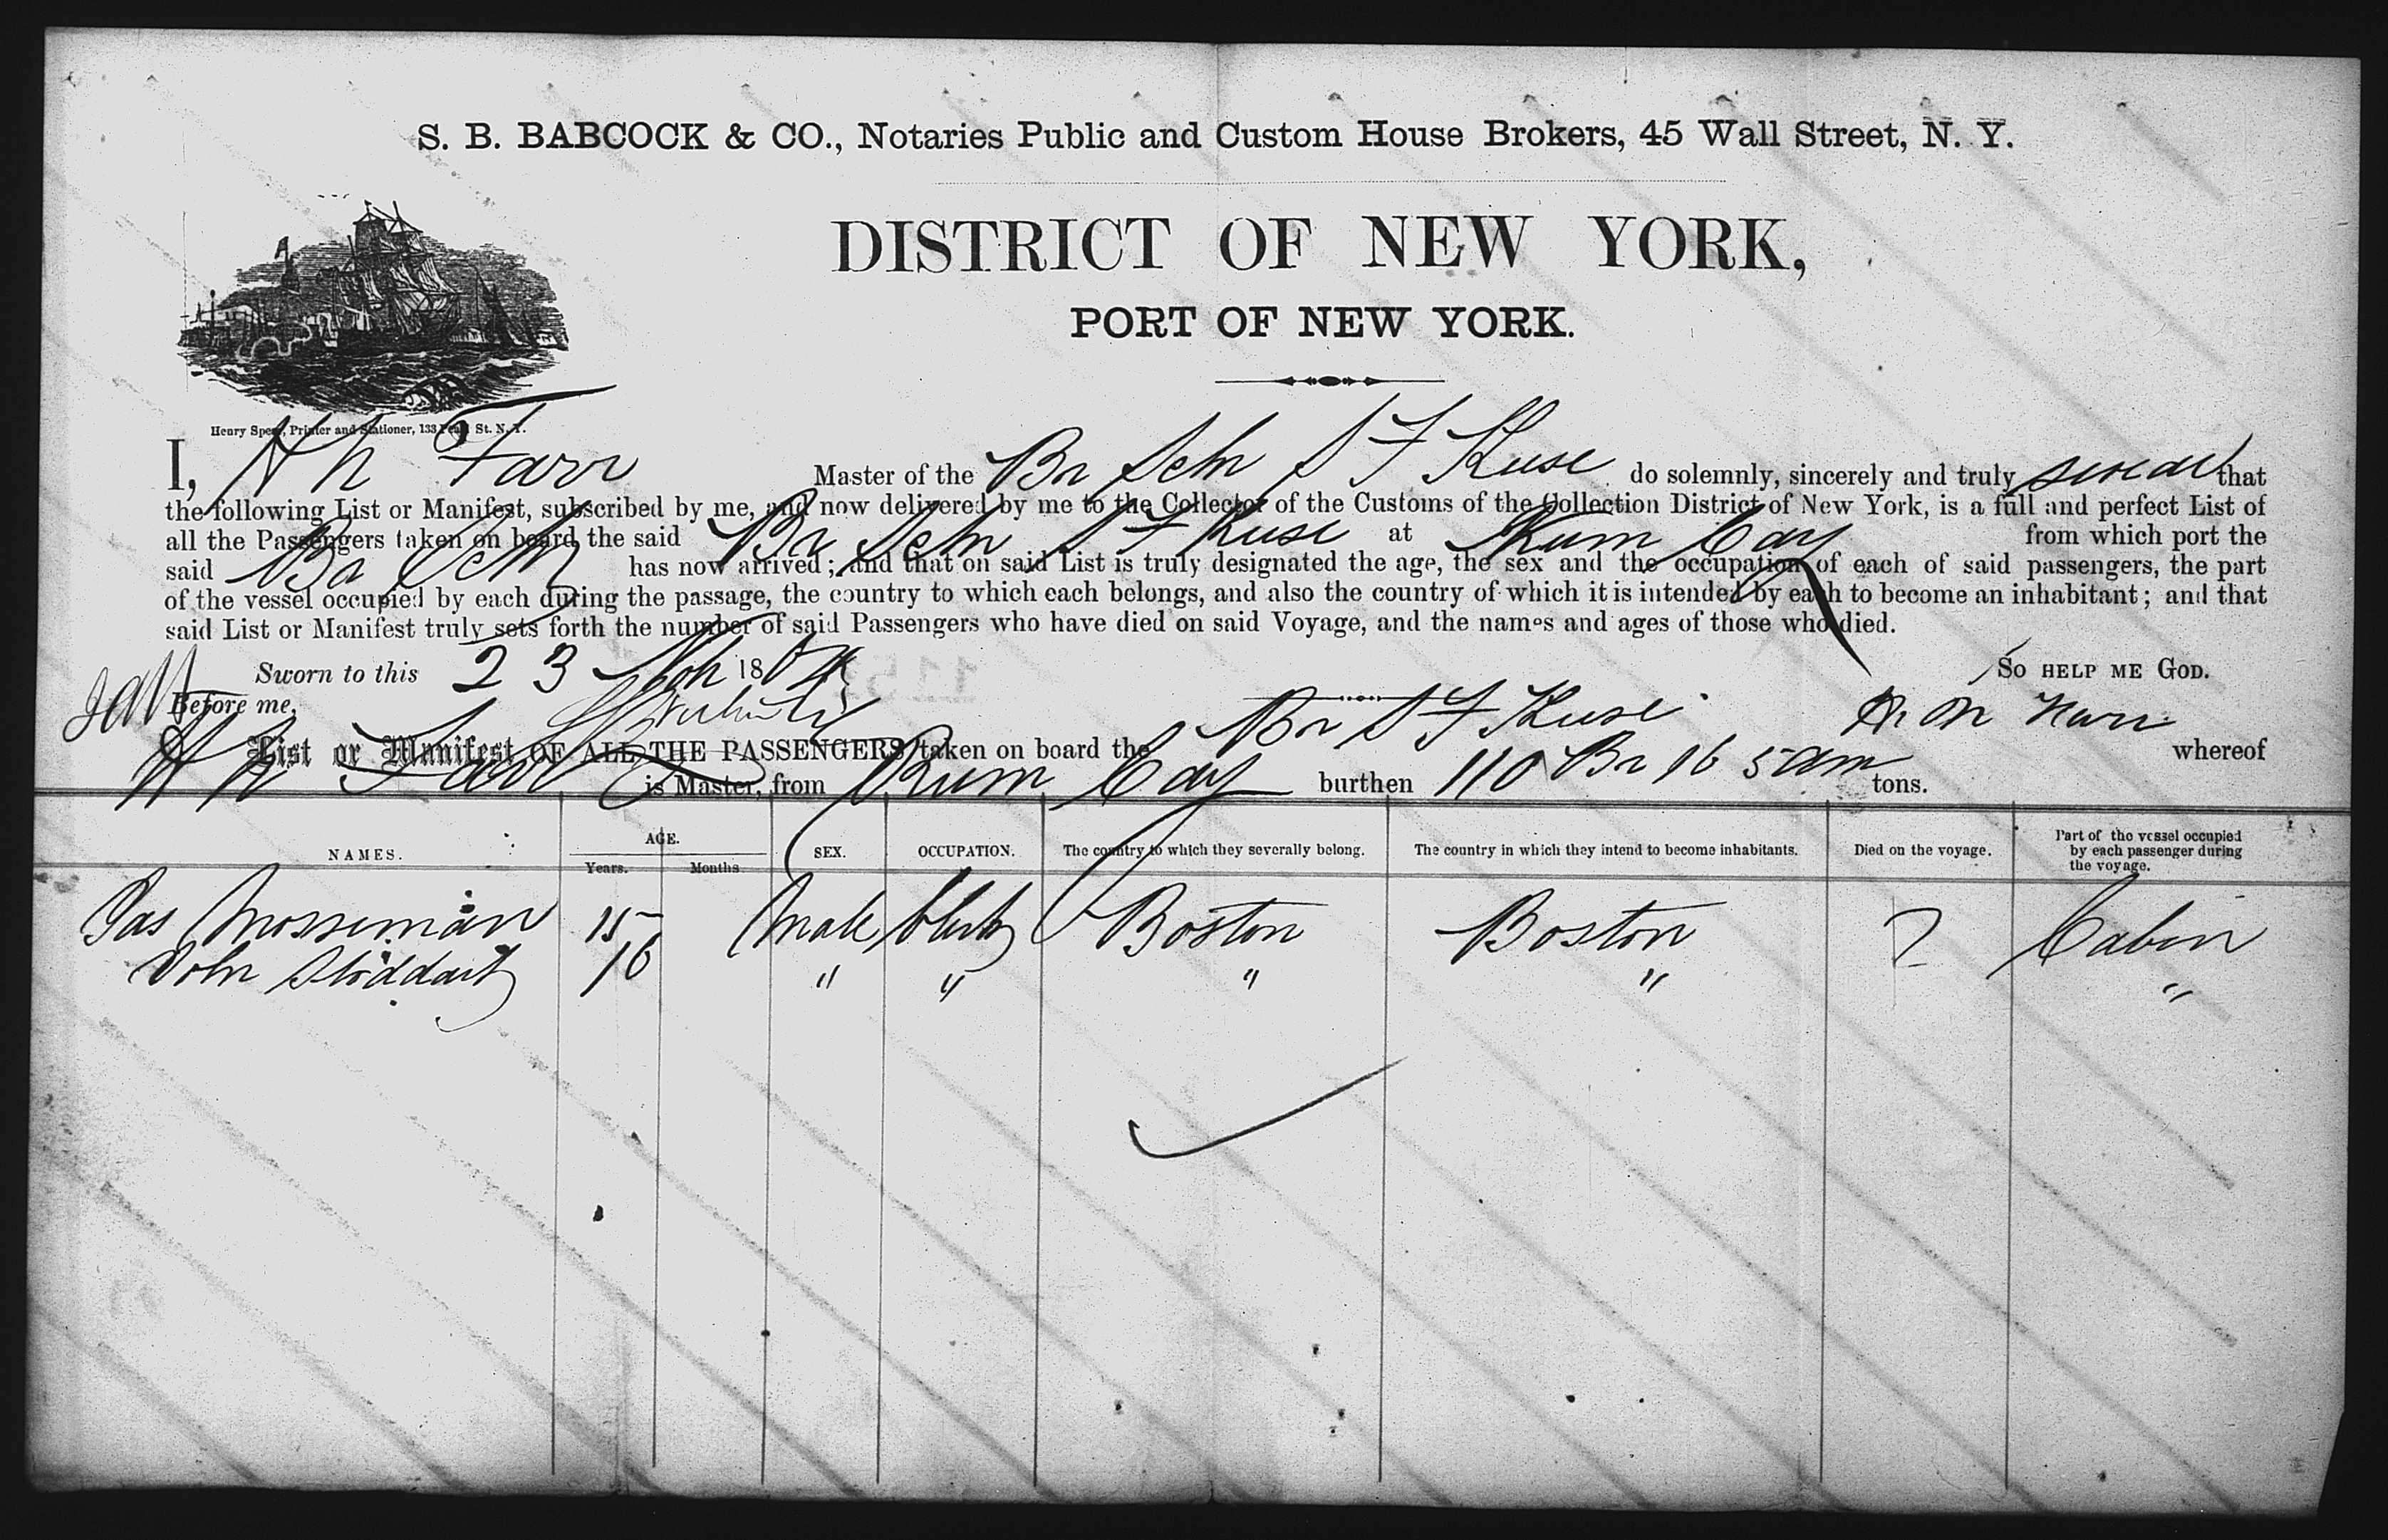 S. B. BABCOCK & CO., Notaries Public and Custom House Brokers, 45 Wall Street, N. Y.
DISTRICT OF NEW YORK,
PORT OF NEW YORK.
Henry Spear, Printer and Stationer, 133 Pearl St. N. Y.
I, Farr Master of the Br Schr S F Kuse do solemnly, sincerely and truly swear that
the following List or Manifest, subscribed by me, and now delivered by me to the Collector of the Customs of the Collection District of New York, is a full and perfect List of
all the Passengers taken on board the said Br Schr S F Kuse at Rum Cay from which port the
said Br Schr has now arrived; and that on said List is truly designated the age, the sex and the occupation of each of said passengers, the part
of the vessel occupied by each during the passage, the country to which each belongs, and also the country of which it is intended by each to become an inhabitant; and that
said List or Manifest truly sets forth the number of said Passengers who have died on said Voyage, and the names and ages of those who died.
Sworn to this 23 186 SO HELP ME GOD.
Before me,
List or Manifest OF ALL THE PASSENGERS taken on board the Br S F Kuse whereof
Farr is Master, from Rum Cay burthen 110 tons.
NAMES. AGE. SEX. OCCUPATION. The country to which they severally belong. The country in which they intend to become inhabitants. Died on the voyage. Part of the vessel occupied by each passenger during the voyage.
Years. Months
Jas Mosseman 15 Male Clerk Boston Boston Cabin
John Stoddart 16 " " " " "